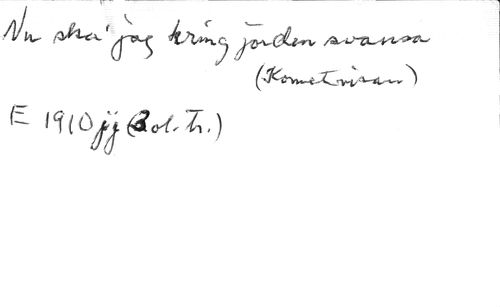 Nu ska' jag kring jorden svansa
(Kometvisan)
E 1910 jj (Bol. tr.)